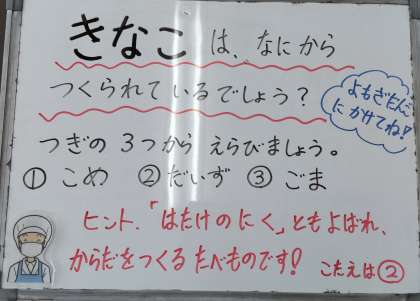 きなこは、なにから
つくられているでしょう?
よもぎだんご
にかけてね!
つぎの3つからえらびましょう。
① こめ ② だいず ③ ごま
ヒント.「はたけのにく」ともよばれ、
からだをつくるたべものです! こたえは②